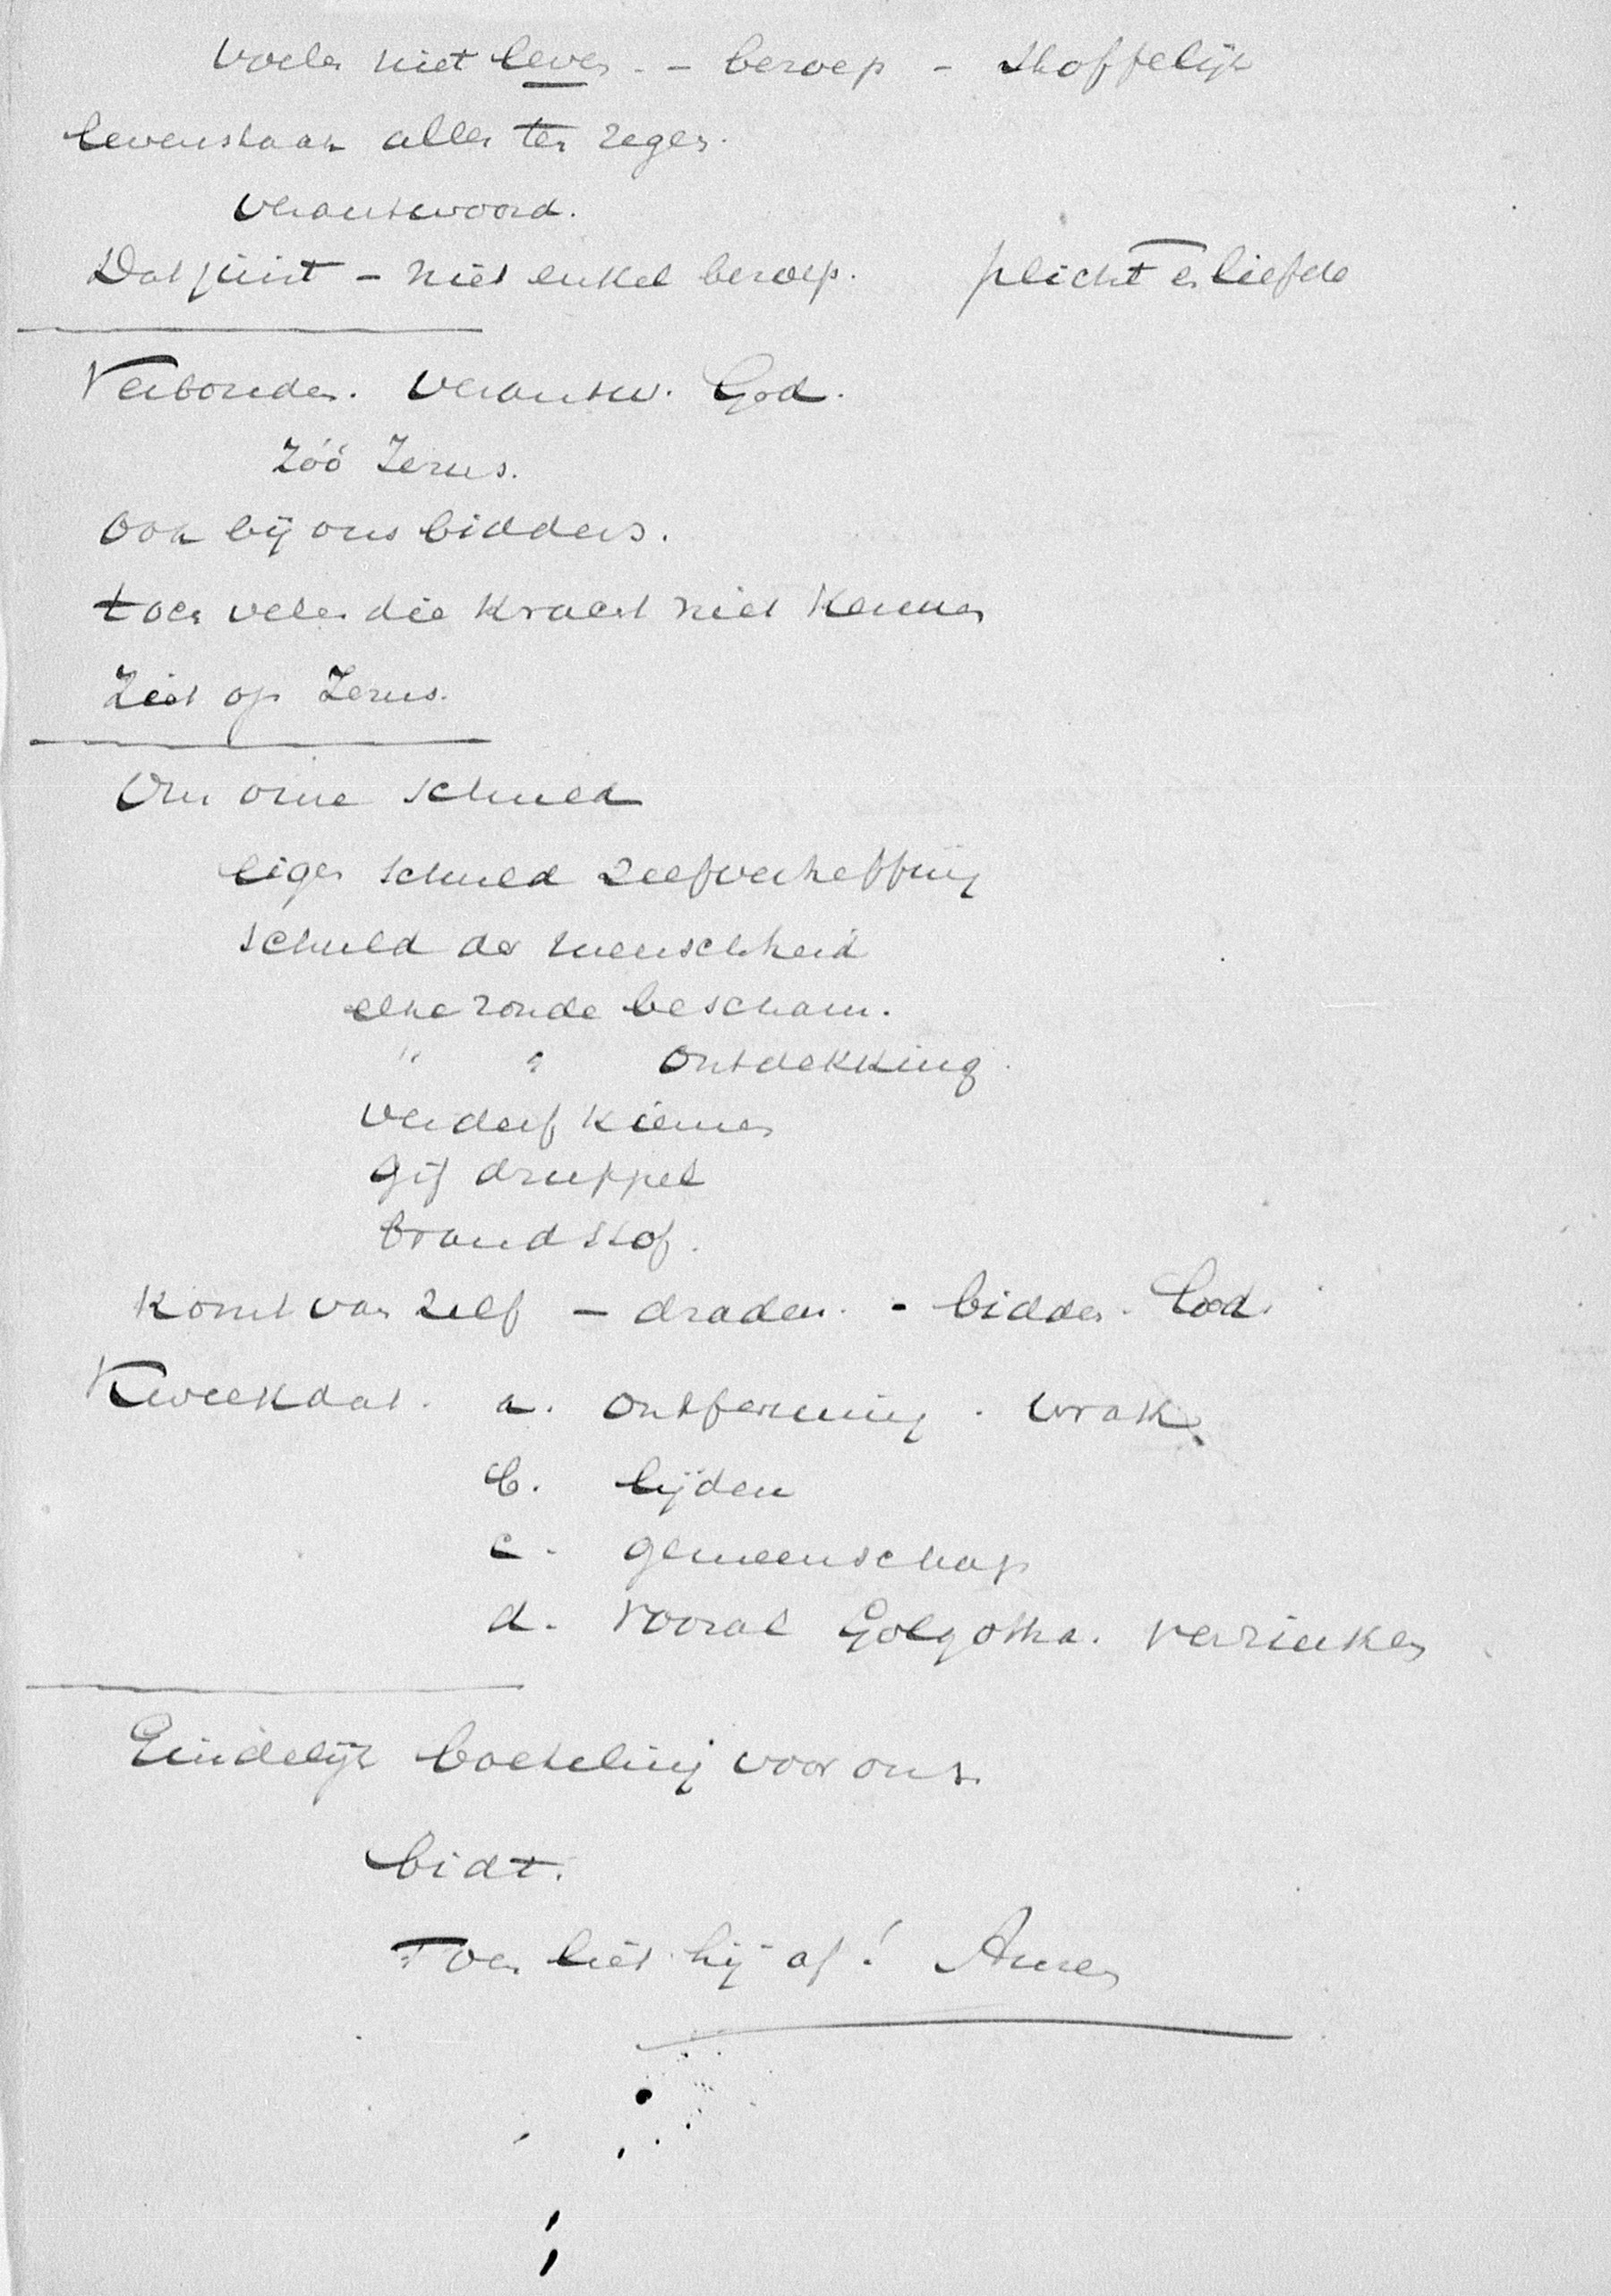 Voelen niet leven - beroep - stoffelijk
levenstaak allen ten zegen.
verantwoord.
Dat juist - niet enkel beroep. plicht en liefde
Verbonden. verantw. God.
Zóó Jezus.
Ook bij ons bidders.
toen velen die kracht niet kennen
Ziet op Jezus.
Om onze schuld
eigen schuld zelfverheffing
schuld der menschheid
elke zonde bescham.
" " ontdekking.
verderf kiemen
gif druppel
brandstof.
Komt van zelf - draden. - bidden. God.
Kweek dat. a. ontferming. wrak
b. lijden
c. gemeenschap
d. vooral Golgotha. verzinken
Eindelijk boeteling voor ons.
bidt.
Toen liet hij af! Amen